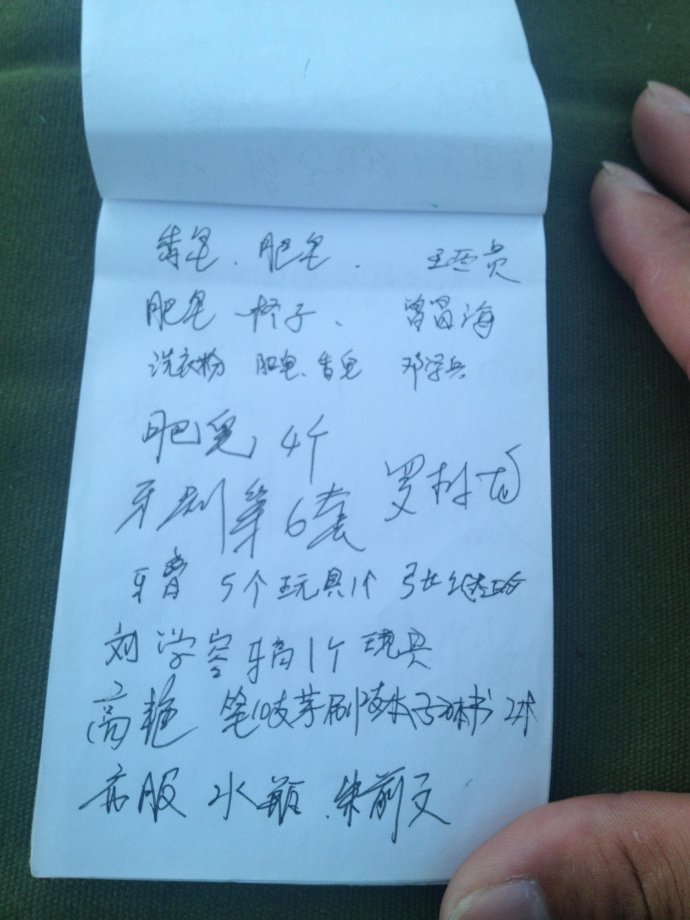 香皂、肥皂、 王亚员
肥皂 杯子、 曾冒海
洗衣粉 肥皂、香皂 邓学兵
肥皂 4个
牙刷 等6套 罗村
牙膏 5个 玩具1个 张
刘学容 牙膏1个 玩具
高艳 笔10支 牙刷 本子 书 2本
衣服 水瓶、朱前文